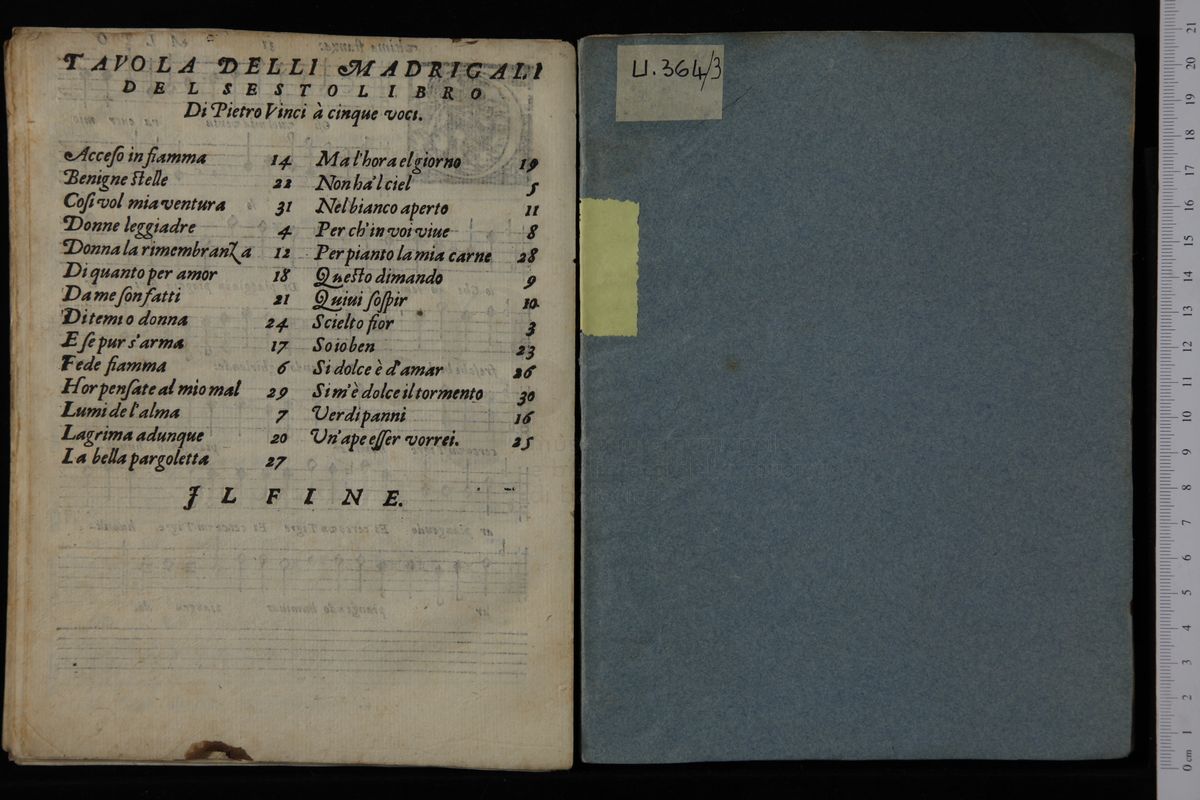 TAVOLA DELLI MADRIGALI
DEL SESTO LIBRO
Di Pietro Vinci à cinque voci.
Acceſo in fiamma 14
Benigne ſtelle 22
Coſi vol mia ventura 31
Donne leggiadre 4
Donna la rimembranza 12
Di quanto per amor 18
Da me ſon fatti 21
Ditemi o donna 24
E ſe pur s'arma 17
Fede fiamma 6
Hor penſate al mio mal 29
Lumi de l'alma 7
Lagrima adunque 20
La bella pargoletta 27
Ma l'hora el giorno 19
Non ha'l ciel 5
Nel bianco aperto 11
Per ch'in voi viue 8
Per pianto la mia carne 28
Queſto dimando 9
Quiui ſoſpir 10
Scielto fior 3
So io ben 23
Si dolce è d'amar 26
Si m'è dolce il tormento 30
Verdi panni 16
Vn'ape eſſer vorrei. 25
IL FINE.
U.364/3
0 cm 1 2 3 4 5 6 7 8 9 10 11 12 13 14 15 16 17 18 19 20 21